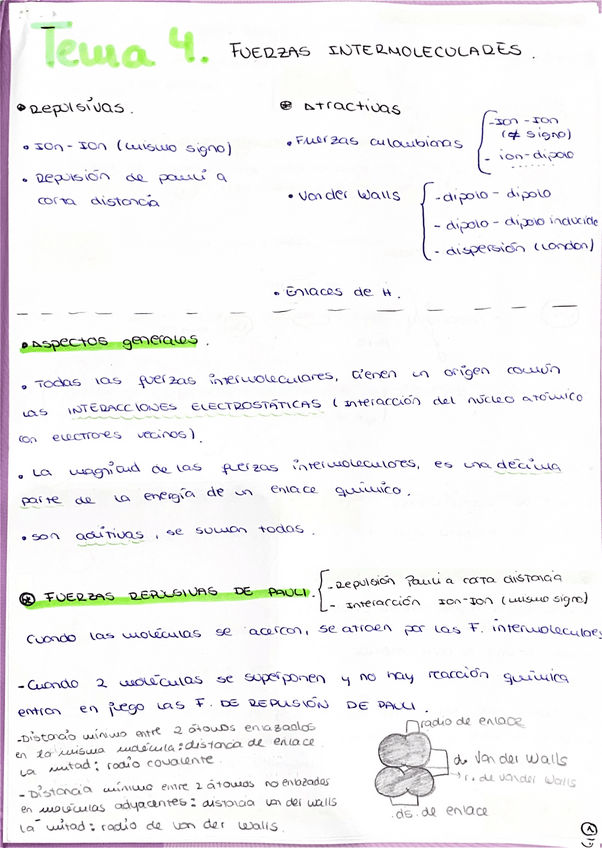 Tema 4. FUERZAS INTERMOLECULARES.
• Repulsivas.
• Ion-Ion (mismo signo)
• Repulsión de pauli a
corta distancia
Atractivas
• Fuerzas culombianas
- Ion-Ion
(≠ signo)
- ion-dipolo
• Van der Walls
- dipolo - dipolo
- dipolo - dipolo inducido
- dispersión (London)
• Enlaces de H.
• Aspectos generales.
• Todas las fuerzas intermoleculares, tienen un origen común
las INTERACCIONES ELECTROSTÁTICAS (Interacción del núcleo atómico
con electrones vecinos).
• La magnitud de las fuerzas intermoleculares, es una décima
parte de la energía de un enlace químico.
• Son aditivas, se suman todas.
FUERZAS REPULSIVAS DE PAULI.
- Repulsión Pauli a corta distancia
- Interacción Ion-Ion (mismo signo)
Cuando las moléculas se acercan, se atraen por las F. intermoleculares
- Cuando 2 moléculas se superponen y no hay reacción química
entran en juego las F. DE REPULSIÓN DE PAULI.
- Distancia mínima entre 2 átomos enlazados
en la misma molécula: distancia de enlace.
La mitad: radio covalente.
- Distancia mínima entre 2 átomos no enlazados
en moléculas adyacentes: distancia van der walls
la mitad: radio de van der walls.
radio de enlace
d. Van der Walls
r. de van der Walls
ds. de enlace